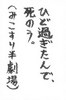 ひど過ぎたんで、
死のう。
（みこすり半劇場）